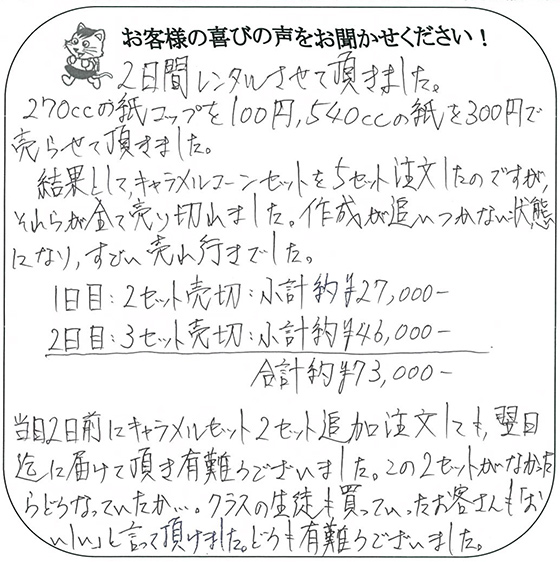 お客様の喜びの声をお聞かせください！
2日間レンタルさせて頂きました。
270ccの紙コップを100円,540ccの紙を300円で
売らせて頂きました。
結果として,キャラメルコーンセットを5セット注文したのですが,
それらが全て売り切れました。作成が追いつかない状態
になり,すごい売れ行きでした。
1日目:2セット売切:小計約¥27,000-
2日目:3セット売切:小計約¥46,000-
合計約¥73,000-
当日2日前にキャラメルセット2セット追加注文しても,翌日
迄に届けて頂き有難うございました。この2セットがなかった
らどうなっていたか…。クラスの生徒も買っていったお客さんも「お
いしい」と言って頂けました。どうも有難うございました。